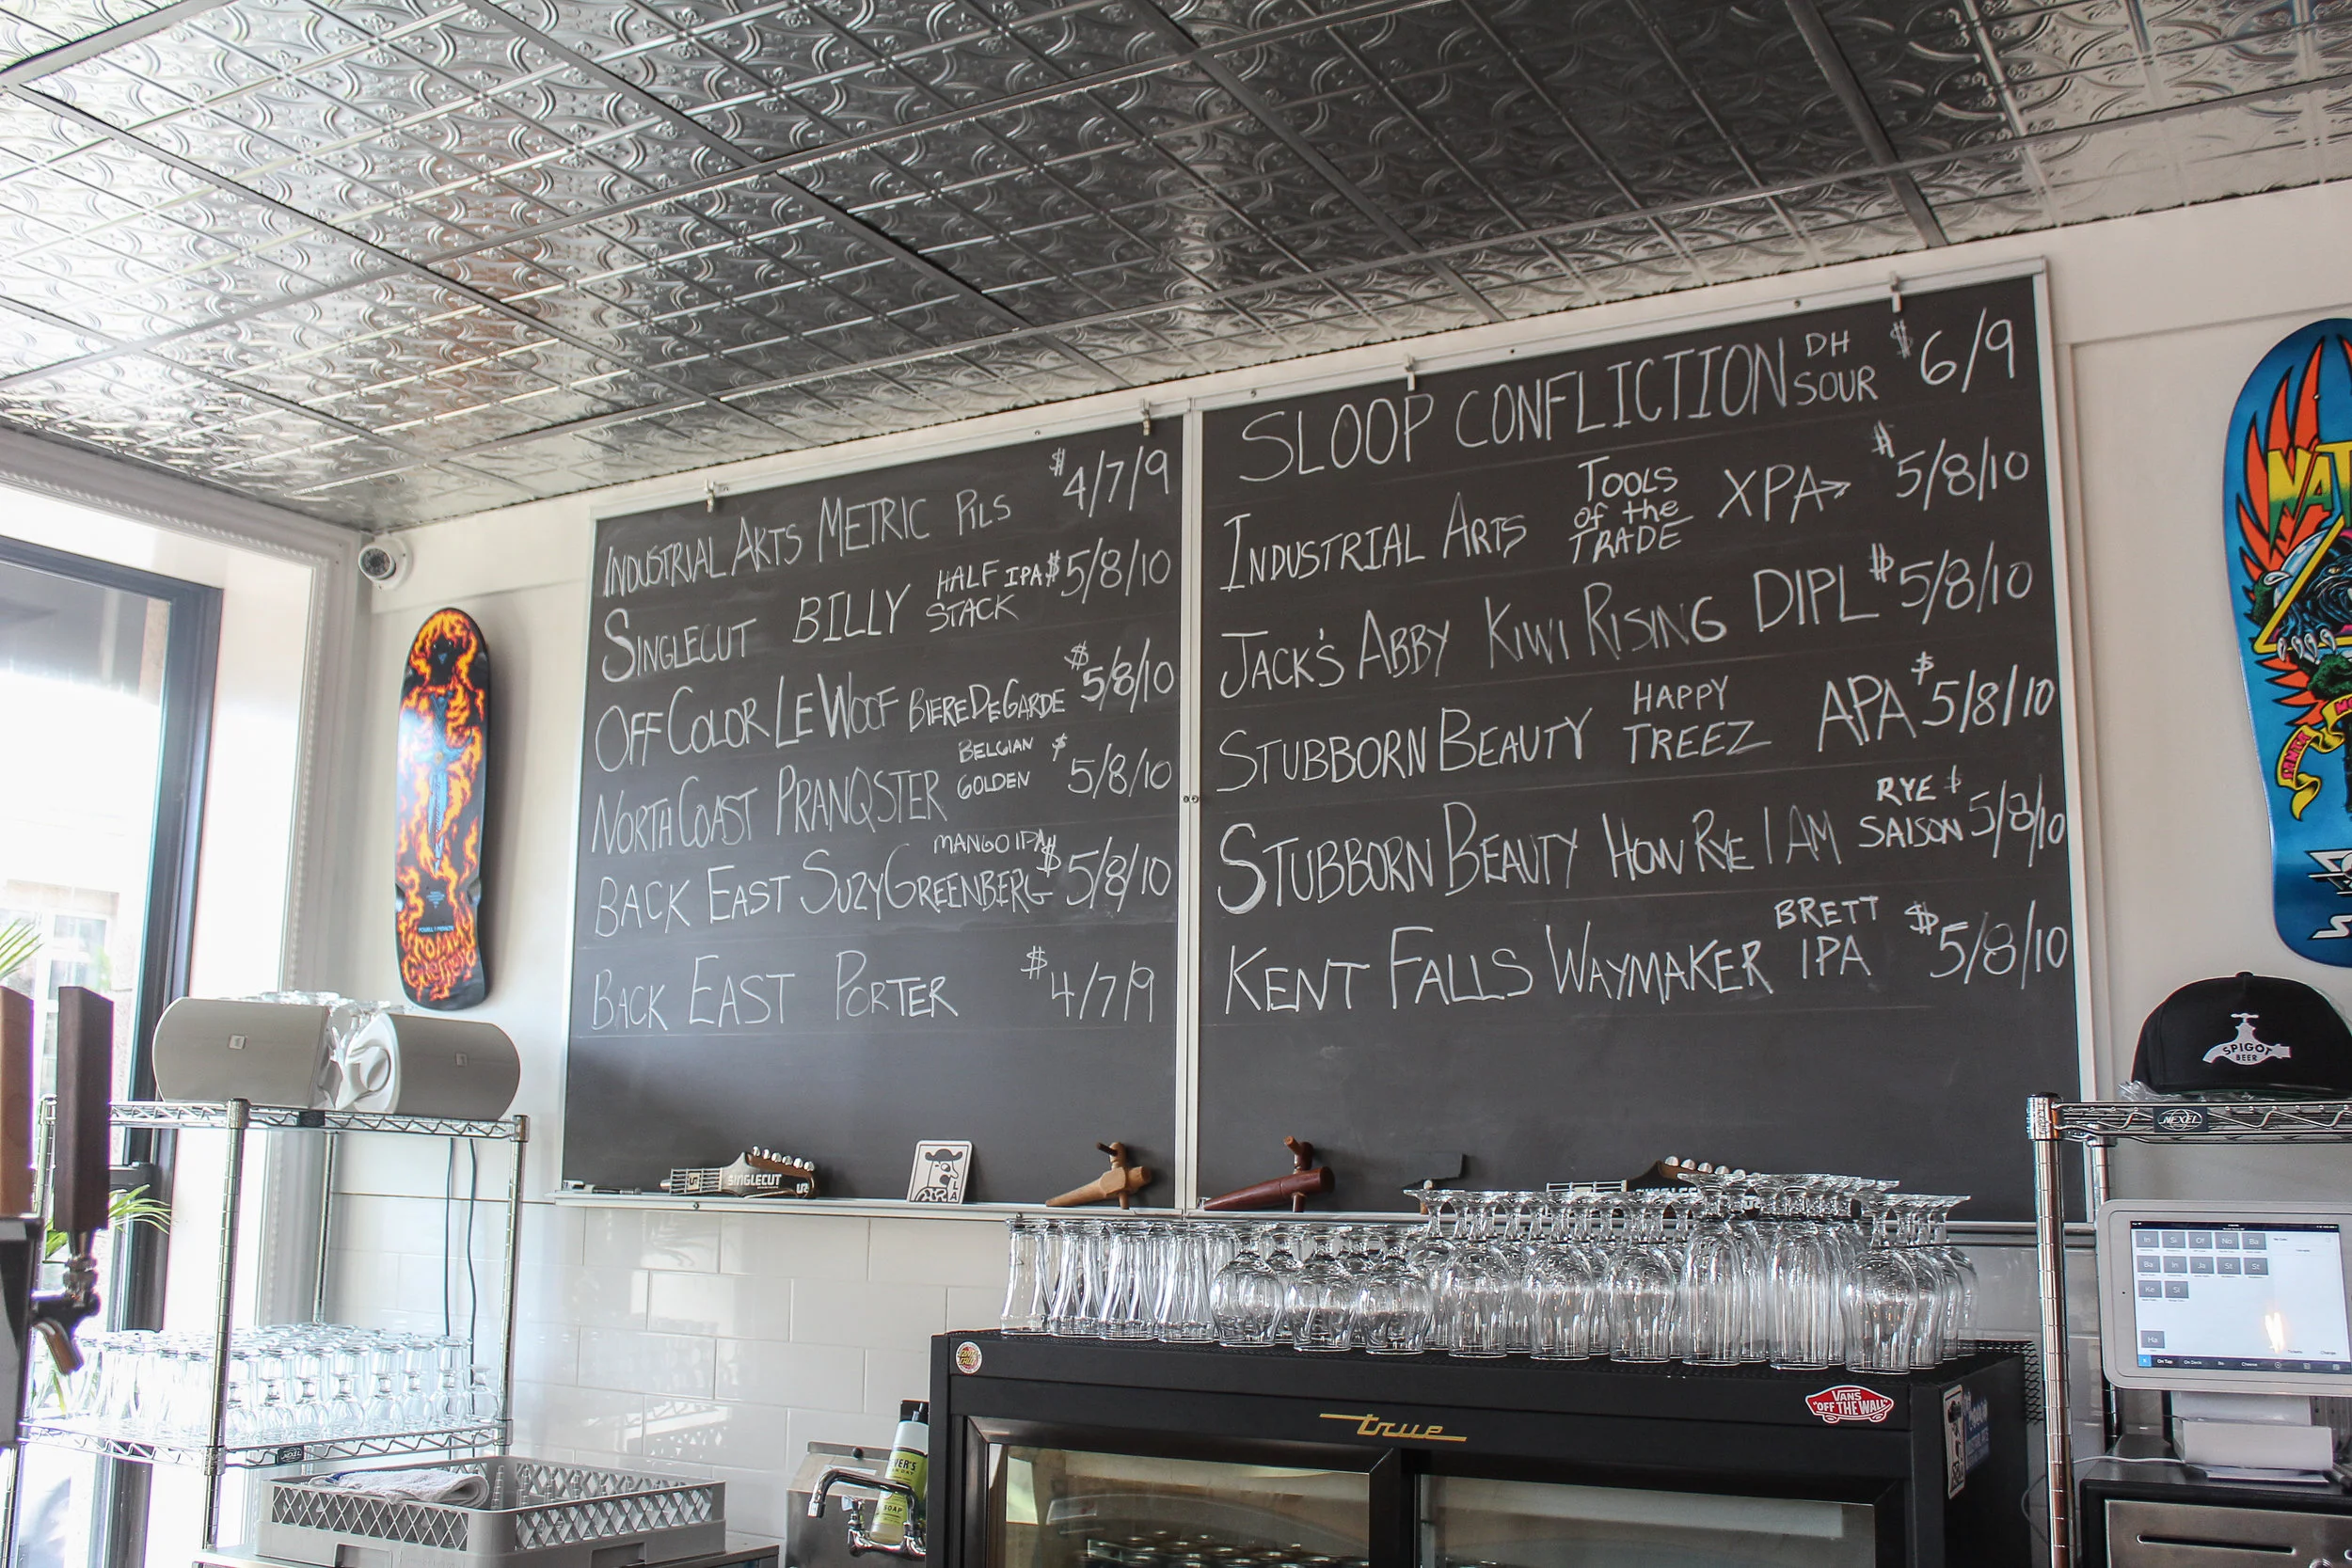 INDUSTRIAL ARTS METRIC PILS $4/7/9
SINGLECUT BILLY HALF STACK IPA $5/8/10
OFF COLOR LE WOOF BIERE DE GARDE $5/8/10
NORTH COAST PRANQSTER BELGIAN GOLDEN $5/8/10
BACK EAST SUZY GREENBERG MANGO IPA $5/8/10
BACK EAST PORTER $4/7/9
SLOOP CONFLICTION DH SOUR $6/9
INDUSTRIAL ARTS TOOLS of the TRADE XPA $5/8/10
JACK'S ABBY KIWI RISING DIPL $5/8/10
STUBBORN BEAUTY HAPPY TREEZ APA $5/8/10
STUBBORN BEAUTY HOW RYE I AM RYE SAISON $5/8/10
KENT FALLS WAYMAKER BRETT IPA $5/8/10
SINGLECUT
LA
SPIGOT
BEER
NEXEL
true
VANS
"OFF THE WALL"
NAT
SOAP
On Tap